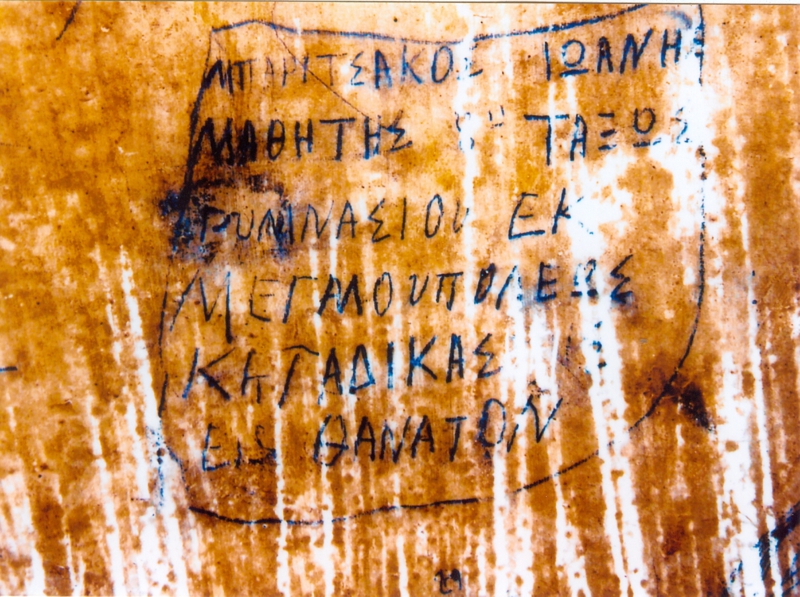 ΜΠΑΡΙΤΣΑΚΟΣ ΙΩΑΝΗΣ
ΜΑΘΗΤΗΣ ΤΑΞΩΣ
ΓΥΜΝΑΣΙΟΥ ΕΚ
ΜΕΓΑΛΟΥΠΟΛΕΩΣ
ΚΑΤΑΔΙΚΑΣ
ΕΙΣ ΘΑΝΑΤΟΝ